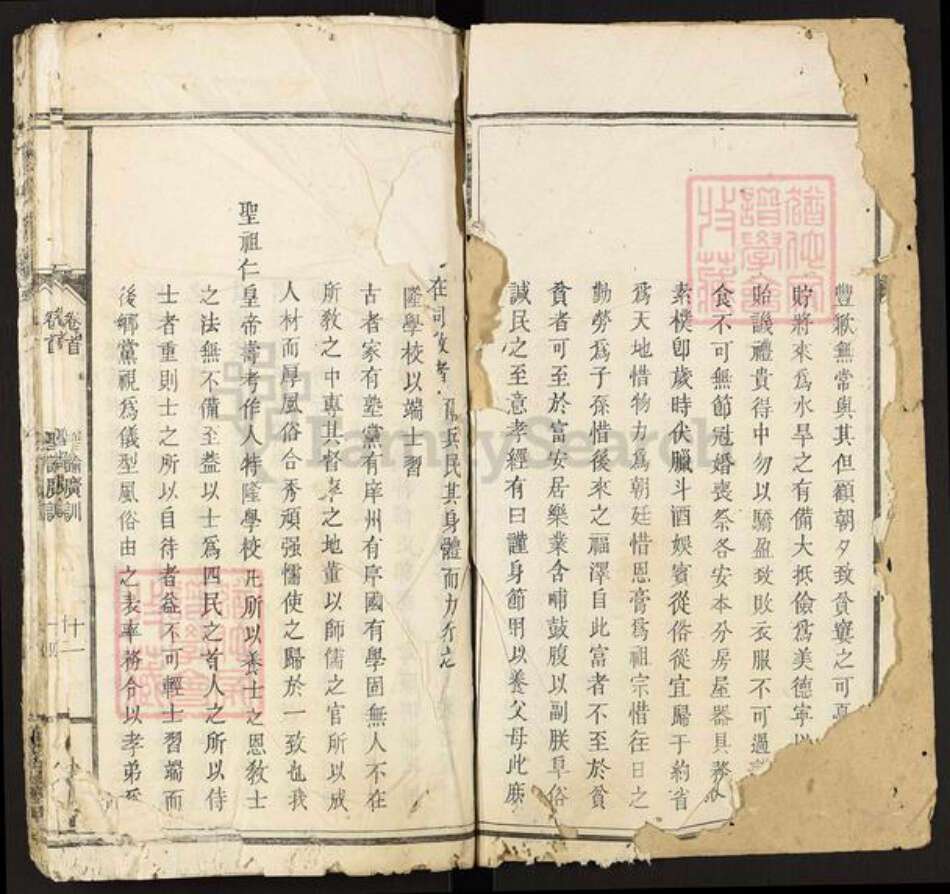 豐歉無常與其但顧朝夕致貧窶之可憂
貯將來為水旱之有備大抵儉為美德寧以
貽譏禮貴得中勿以驕盈致敗衣服不可過
食不可無節冠婚喪祭各安本分房屋器具務
素樸卽歲時伏臘斗酒娛賓從俗從宜歸于約省
爲天地惜物力爲朝廷惜恩膏爲祖宗惜往日之
勤勞爲子孫惜後來之福澤自此富者不至於貧
貧者可至於富安居樂業含哺鼓腹以副朕阜俗
誠民之至意孝經有曰謹身節用以養父母此庶
兵民其身體而力行之
隆學校以端士習
古者家有塾黨有庠州有序國有學固無人不在
所教之中專其督率之地董以師儒之官所以成
人材而厚風俗合秀頑强懦使之歸於一致也我
聖祖仁皇帝壽考作人特隆學校凡所以養士之恩教士
之法無不備至葢以士爲四民之首人之所以待
士者重則士之所以自待者益不可輕士習端而
後鄉黨視爲儀型風俗由之表率務令以孝弟
卷首
聖諭廣訓
十二
卷首
FamilySearch